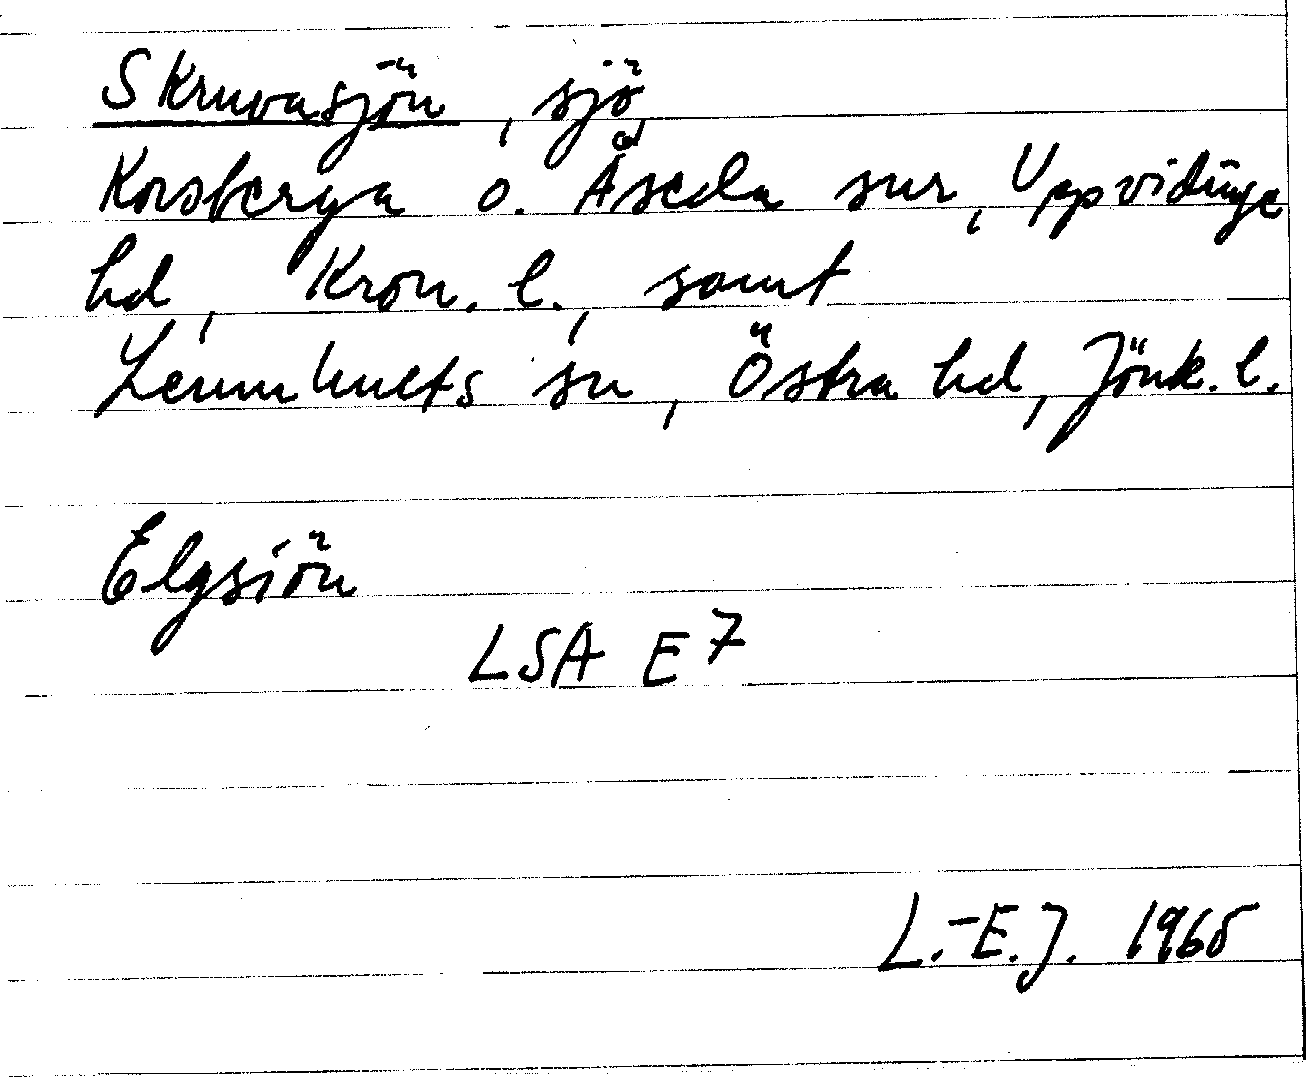 Skruvasjön, sjö
Korsberga o. Åseda snr, Uppvidinge
hd, Kron. l., samt
Lemnhults sn, Östra hd, Jönk. l.
Elgsiön
LSA E7
L.-E. J. 1965